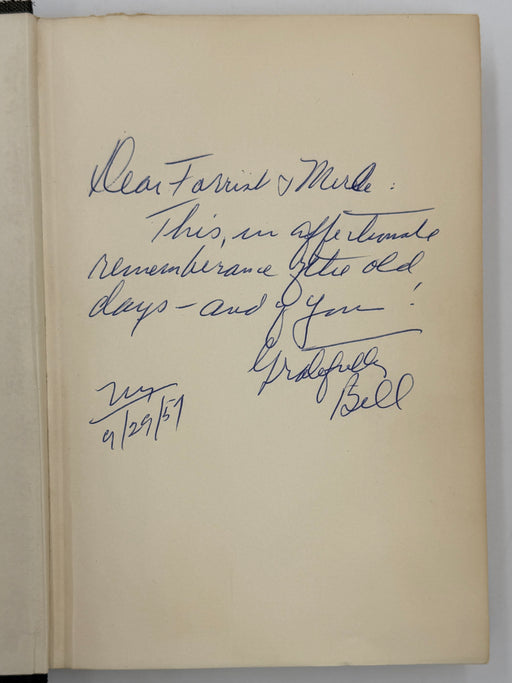 Dear Forrist & Merle:
This, in affectionate
rememberance of the old
days – and of you!
Gratefully
Bill
NY
9/29/57